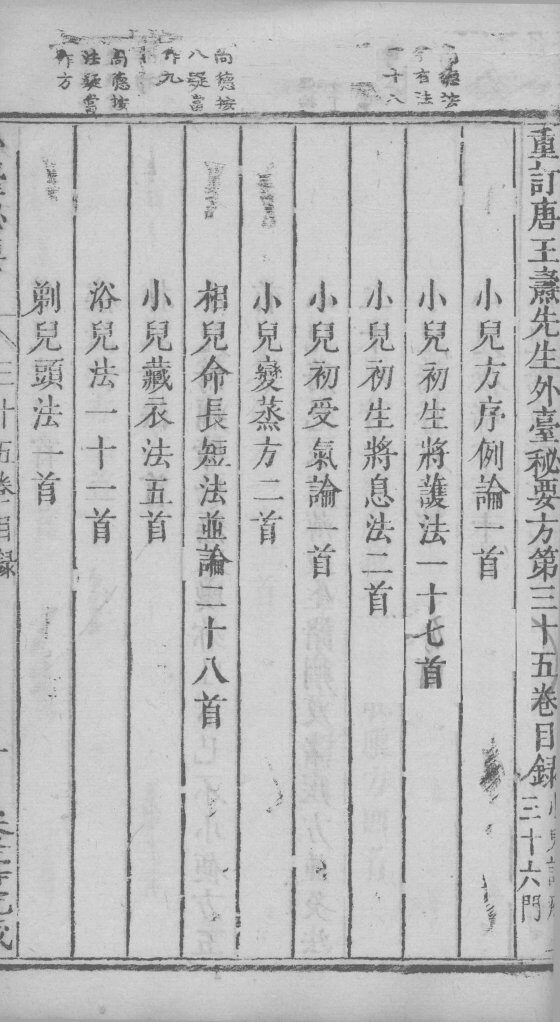 重訂唐王燾先生外臺秘要方第三十五卷目錄
三十六門
小兒方序例論一首
小兒初生將護法一十七首
小兒初生將息法二首
小兒初受氣論一首
小兒變蒸方二首
相兒命長短法並論二十八首
小兒藏衣法五首
浴兒法一十一首
剃兒頭法一首
有法
一十八
尚德按
八疑當
作九
尚德按
法疑當
作方
三十五卷目錄